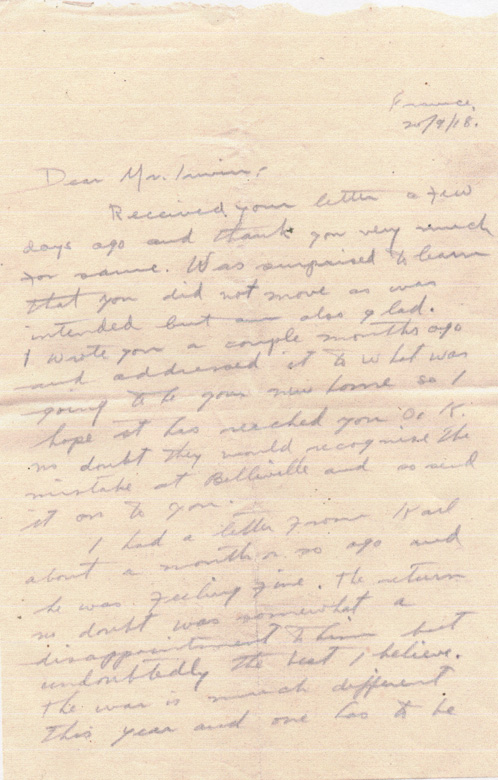 France.
20/9/18.
Dear Mr. Irwin,
Received your letter a few
days ago and thank you very much
for same. Was surprised to learn
that you did not move as was
intended but am also glad.
I wrote you a couple months ago
and addressed it to what was
going to be your new home so I
hope it has reached you O. K.
no doubt they would recognise the
mistake at Belliville and so send
it on to you.
I had a letter from Karl
about a month or so ago and
he was feeling fine. The return
no doubt was somewhat a
disappointment to him but
undoubtedly the best I believe.
The war is much different
this year and one has to be